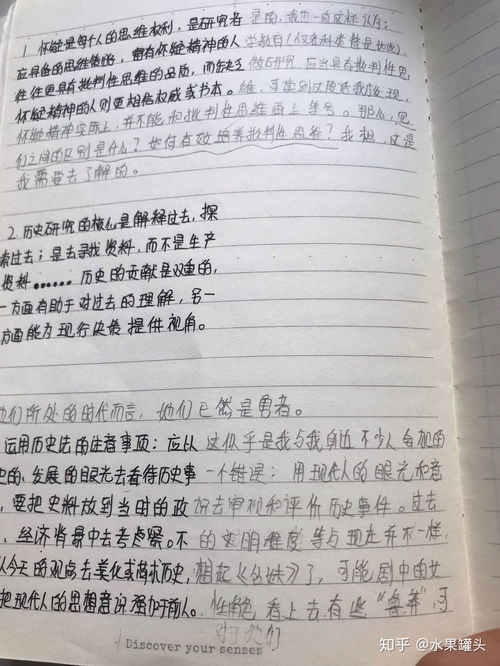 1. 怀疑是每个人的思维权利，是研究者 是的，我也一直这样认为：
应具备的思维策略，富有怀疑精神的人 学教育(仅各科类皆是如此)、
往往更具有批判性思维的品质，而缺乏 做研究，应当具有批判性思
怀疑精神的人则更相信权威或书本。 维，可拿到这段话我才发现，
怀疑精神实际上，并不能和批判性思维画上等号。那么，它
们之间的区别是什么？如何有效培养批判性思维？我想，这是
我需要去了解的。
2. 历史研究的核心是解释过去，探
索过去；是去寻找资料，而不是生产
资料……历史的贡献是双重的，
一方面有助于对过去的理解，另一
方面能为现行决策提供视角。
她们所处的时代而言，她们已然是勇者。
运用历史法的注意事项：应以 这似乎是我与我身边不少人会犯的
史的、发展的眼光去看待历史事 一个错误：用现代人的眼光和意
，要把史料放到当时的政 识去审视和评价历史事件。过去
、经济背景中去考虑。不 的文明程度等与现在并不一样，
从今天的观点去美化或苛求历史， 想起《名姝》了，可能剧中的女
把现代人的思想意识强加于前人。 性角色看上去有些“鲁莽”，可
对于她们
Discover your senses
知乎 @水果罐头